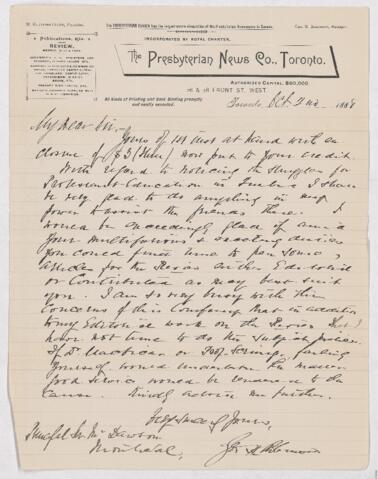 The PRESBYTERIAN REVIEW has the largest circulation of any Presbyterian Newspaper in Canada.
INCORPORATED BY ROYAL CHARTER.
Publications, &c.
REVIEW.
The Presbyterian News Co., Toronto.
AUTHORIZED CAPITAL, $60,000.
26 & 28 FRONT ST. WEST.
All kinds of Printing and Book Binding promptly
and neatly executed.
Toronto, Oct. 2nd 1888
My Dear Sir,
Yours of 1st inst at hand with en
closure of $3 now put to your credit.
With regard to noticing the struggle for
Protestant Education in Quebec I shall
be very glad to do anything in my
power to assist the friends there. I
would be exceedingly glad if amid
your multifarious & exacting duties
you could find time to pen some
articles for the Review either Editorial
or Contributed as may best suit
you. I am so very busy with the
concerns of this Company that in addition
to my Editorial work on the Review that I
have not time to do the subject justice.
If Dr. MacVicar or Prof. Scrimger, failing
yourself would undertake the matter
good service would be rendered to the
cause. Kindly advise me further.
Very sincerely yours,
Principal Sir Wm Dawson
Montreal,